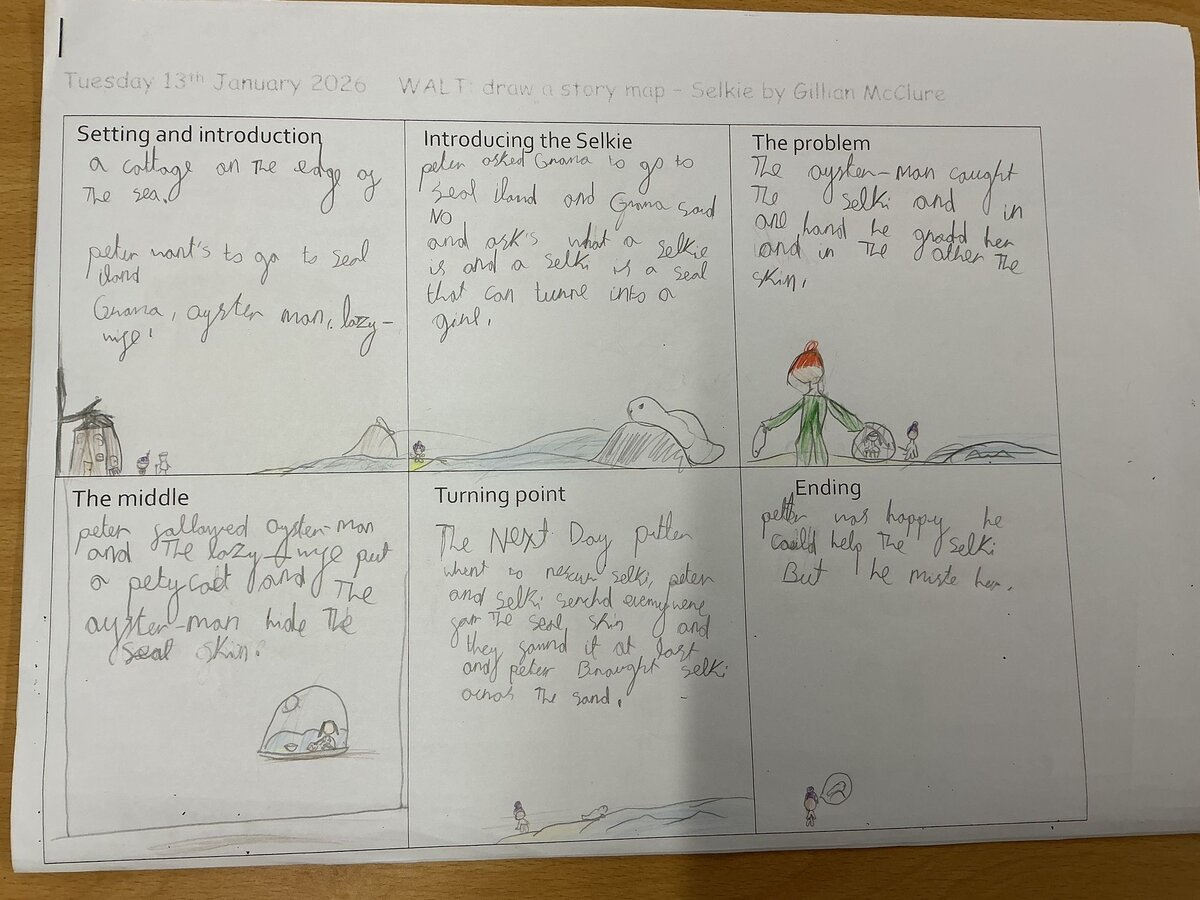 Tuesday 13th January 2026 WALT: draw a story map - Selkie by Gillian McClure
Setting and introduction
a cottage on The edge of
The sea.
peter want's to go to seal
iland
Grnana, oyster man, lazy-
wife!
Introducing the Selkie
peter asked Grnana to go to
seal iland and Grnana said
NO
and ask's what a selkie
is and a selki is a seal
that can turne into a
girl.
The problem
The oyster-man caught
The selki and in
one hand he gradd her
and in The other The
skin.
The middle
peter followed oyster-man
and The lazy-wife put
a petycoat and The
oyster-man hide The
seal skin.
Turning point
The Next Day petter
whent to rescue selki, peter
and selki serchd everywere
for The seal skin and
they found it at last
and peter Brought selki
across The sand.
Ending
petter was happy he
could help The selki
But he miste her.